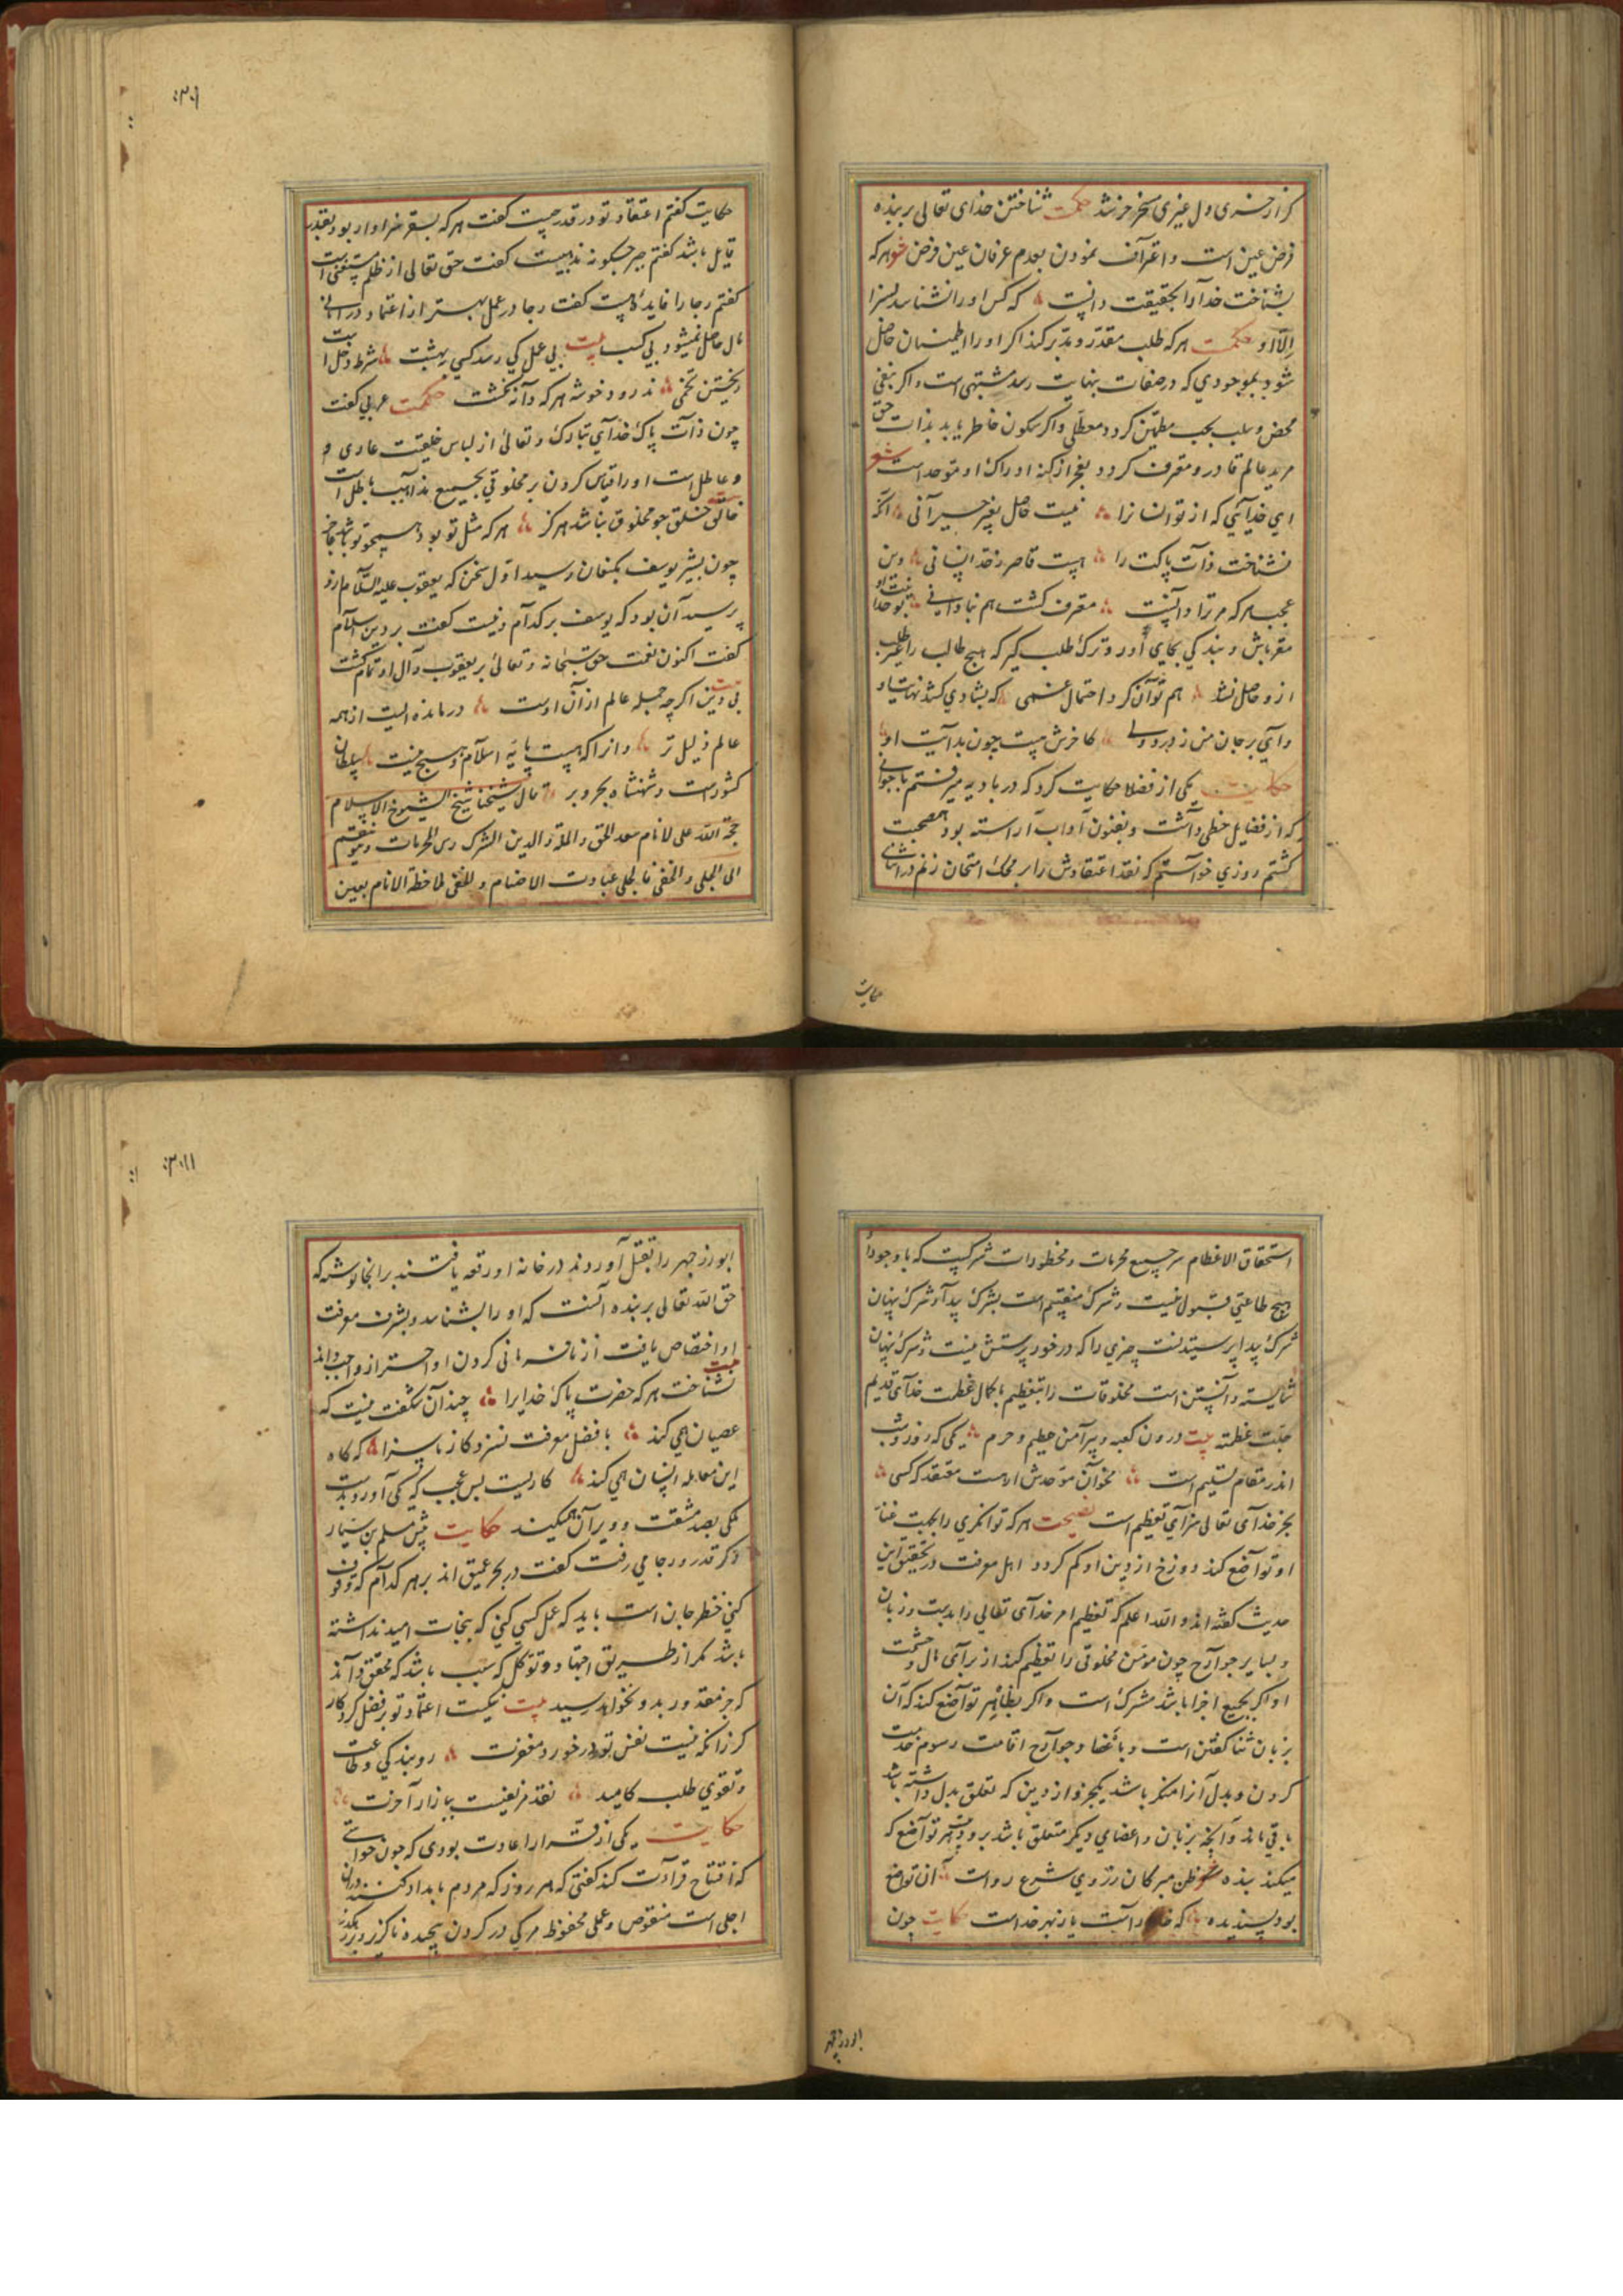 کر از خسری دل غیری مسخر خر نشد حکمت شناختن خدای تعالی بر بنده
فرض عین است و اعتراف نمودن بعدم عرفان عین فرض شعر هر که
بشناخت خدا را بحقیقت دانست که کس او را نشناسد بسزا
الا او حکمت هر که طلب مقدر و مدبر کند اکر او را اطمینان حاصل
شود بموجودی که در صفات بنهایت رسد مشتبهی است و اکر بنفی
محض و سلب بحت مطمئن کردد معطلی و اکر سکون خاطر یابد بذات حق
مرید عالم قادر و معترف کردد بعجز از کنه ادراک او موحد است شعر
ای خدایی که از تو انسانرا نیست حاصل بغیر حیرانی آنکه
نشناخت ذات پاکت را هست قاصر ز قدر انسانی وین
عجب هر که مر ترا دانست معترف کشت هم بنادانی بخدا
مقر باش و بندکی بجای آور و ترک طلب کیر که هیچ طالب را غیر طلب
ازو حاصل نشد هم توان کرد احتمال غمی که بشادی کشد نهایت او
وای بر جان من ز درد دلی کاخرش نیست چون بدایت او
حکایت یکی از فضلا حکایت کرد که در بادیه میرفتم با جوانی
که از فضایل حظی داشت و بفنون آداب آراسته بود همصحبت
کشتم روزی خواستم که نقد اعتقادش را بر محک امتحان زنم در اثنای
حکایت
حکایت کفتم اعتقاد تو در قدر چیست کفت هر که بسقر سزاوار بود بقدر
قایل باشد کفتم جبر چکونه مذهبیست کفت حق تعالی از ظلم مستغنی است
کفتم رجا را فایده چیست کفت رجا در عمل بهتر از اعتماد در امانی
مال حاصل نمیشود بی کسب بیت بی عمل کی رسد کسی ببهشت شرط دخل است
ریختن تخمی ندرود خوشه هر که دانه نکشت حکمت عربی کفت
چون ذات پاک خدای تبارک و تعالی از لباس خلیقت عاری و
و عاطل است او را قیاس کردن بر مخلوقی بجمیع مذاهب باطل است
خالق خلق چو مخلوق نباشد هرکز هر که مثل تو بود همچو تو باشد عاجز
چون بشیر یوسف بکنعان رسید اول سخن که یعقوب علیه السلام ازو
پرسید آن بود که یوسف بر کدام دینست کفت بر دین اسلام
کفت اکنون نعمت حق سبحانه و تعالی بر یعقوب و آل او تمام کشت
بیت بی دین اکرچه جمله عالم از آن اوست درمانده ایست از همه
عالم ذلیل تر و انرا که هست پایه اسلام و هیچ نیست سلطان
کشورست و شهنشاه بحر و بر قال شیخنا شیخ الشیوخ الاسلام
حجة الله علی الانام سعد الحق و الملة و الدین الشرک راس المحرمات و ینقسم
الی الجلی و الخفی فالجلی عبادت الاصنام و الخفی ملاحظة الانام بعین
استحقاق الاعظام سر جمیع محرمات و محظورات شرکیست که با وجود او
هیچ طاعتی قبول نیست و شرک منقسم است بشرک پیدا و شرک پنهان
شرک پیدا پرستیدنست چیزی را که در خور پرستش نیست و شرک پنهان
شایسته دانستن است مخلوقات را بتعظیم با کمال عظمت خدای قدیم
جلت عظمته بیت درون کعبه و پیرامن حطیم و حرم یکی که روز و شب
اندر مقام تسلیم است مخوان موحدش ار هست معتقد که کسی
بجز خدای تعالی سزای تعظیم است نصیحت هر که توانکری را بجهت غنای
او تواضع کند دوزخ از دین او کم کردد اهل معرفت در تحقیق این
حدیث کفته اند و الله اعلم که تعظیم امر خدای تعالی را بدیست و زبان
و بسایر جوارح چون مؤمن مخلوقی را تعظیم کند از برای مال و حشمت
او اکر بجمیع اجزا باشد مشرک است و اکر بظاهر تواضع کند که آن
بزبان ثنا کفتن است و باعضا و جوارح اقامت رسوم خدمت
کردن و بدل آنرا منکر باشد یکجزو از دین که تعلق بدل داشته باشد
باقی ماند و آنچه بزبان و اعضای دیکر متعلق باشد برود هر تواضع که
میکند بنده شعر ظن مبر کان ز روی شرع رواست آن تواضع
بود پسندیده که خدا راست یا ز بهر خداست حکایت چون
ابوزرجمهر
ابوزرجمهر را بقتل آوردند در خانه او رقعه یافتند بر انجا نوشته که
حق الله تعالی بر بنده آنست که او را بشناسد و بشرف معرفت
او اختصاص یافت از نافرمانی کردن او احتراز واجب داند
بیت نشناخت هر که حضرت پاک خدایرا چندان شکفت نیست که
عصیان همی کند با فضل معرفت نسزد کار ناسزا که کاه
این معامله انسان همی کند کاریست بس عجب که یکی آورد بدست
ملکی بصد مشقت و ویران همیکند حکایت پیش مسلم بن یسار
ذکر قدر و رجا می رفت کفت دو بحر عمیق اند بر هر کدام که وقوف
کنی خطر جان است باید که عمل کسی کنی که بنجات امید نداشته
باشد مکر از طریق اجتهاد و توکل کسیت باشد که محقق داند
که جز مقدور بدو نخواهد رسید بیت نیکست اعتماد تو بر فضل کردکار
کر زانکه نیست نفس تو در خورد مغفرت رو بندکی و طاعت
و تقوی طلب کامید نقد مزیفیست ببازار آخرت
حکایت یکی از قرا را عادت بودی که چون خواستی
که افتتاح قراآت کند کفتی که هر روز که مردم بامداد کنند در ان
اجلی است منقوص و عملی محفوظ مرکی در کردن پیچیده ناکزیر